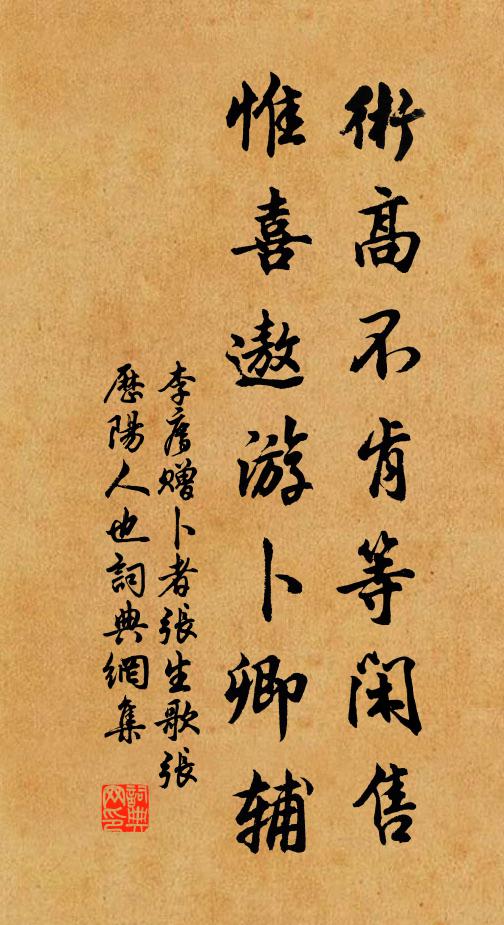 術高不肯等閑售
惟喜遨游卜卿辅
李廌贈卜者張生歌張
歷陽人也詞典網集
詞典网印